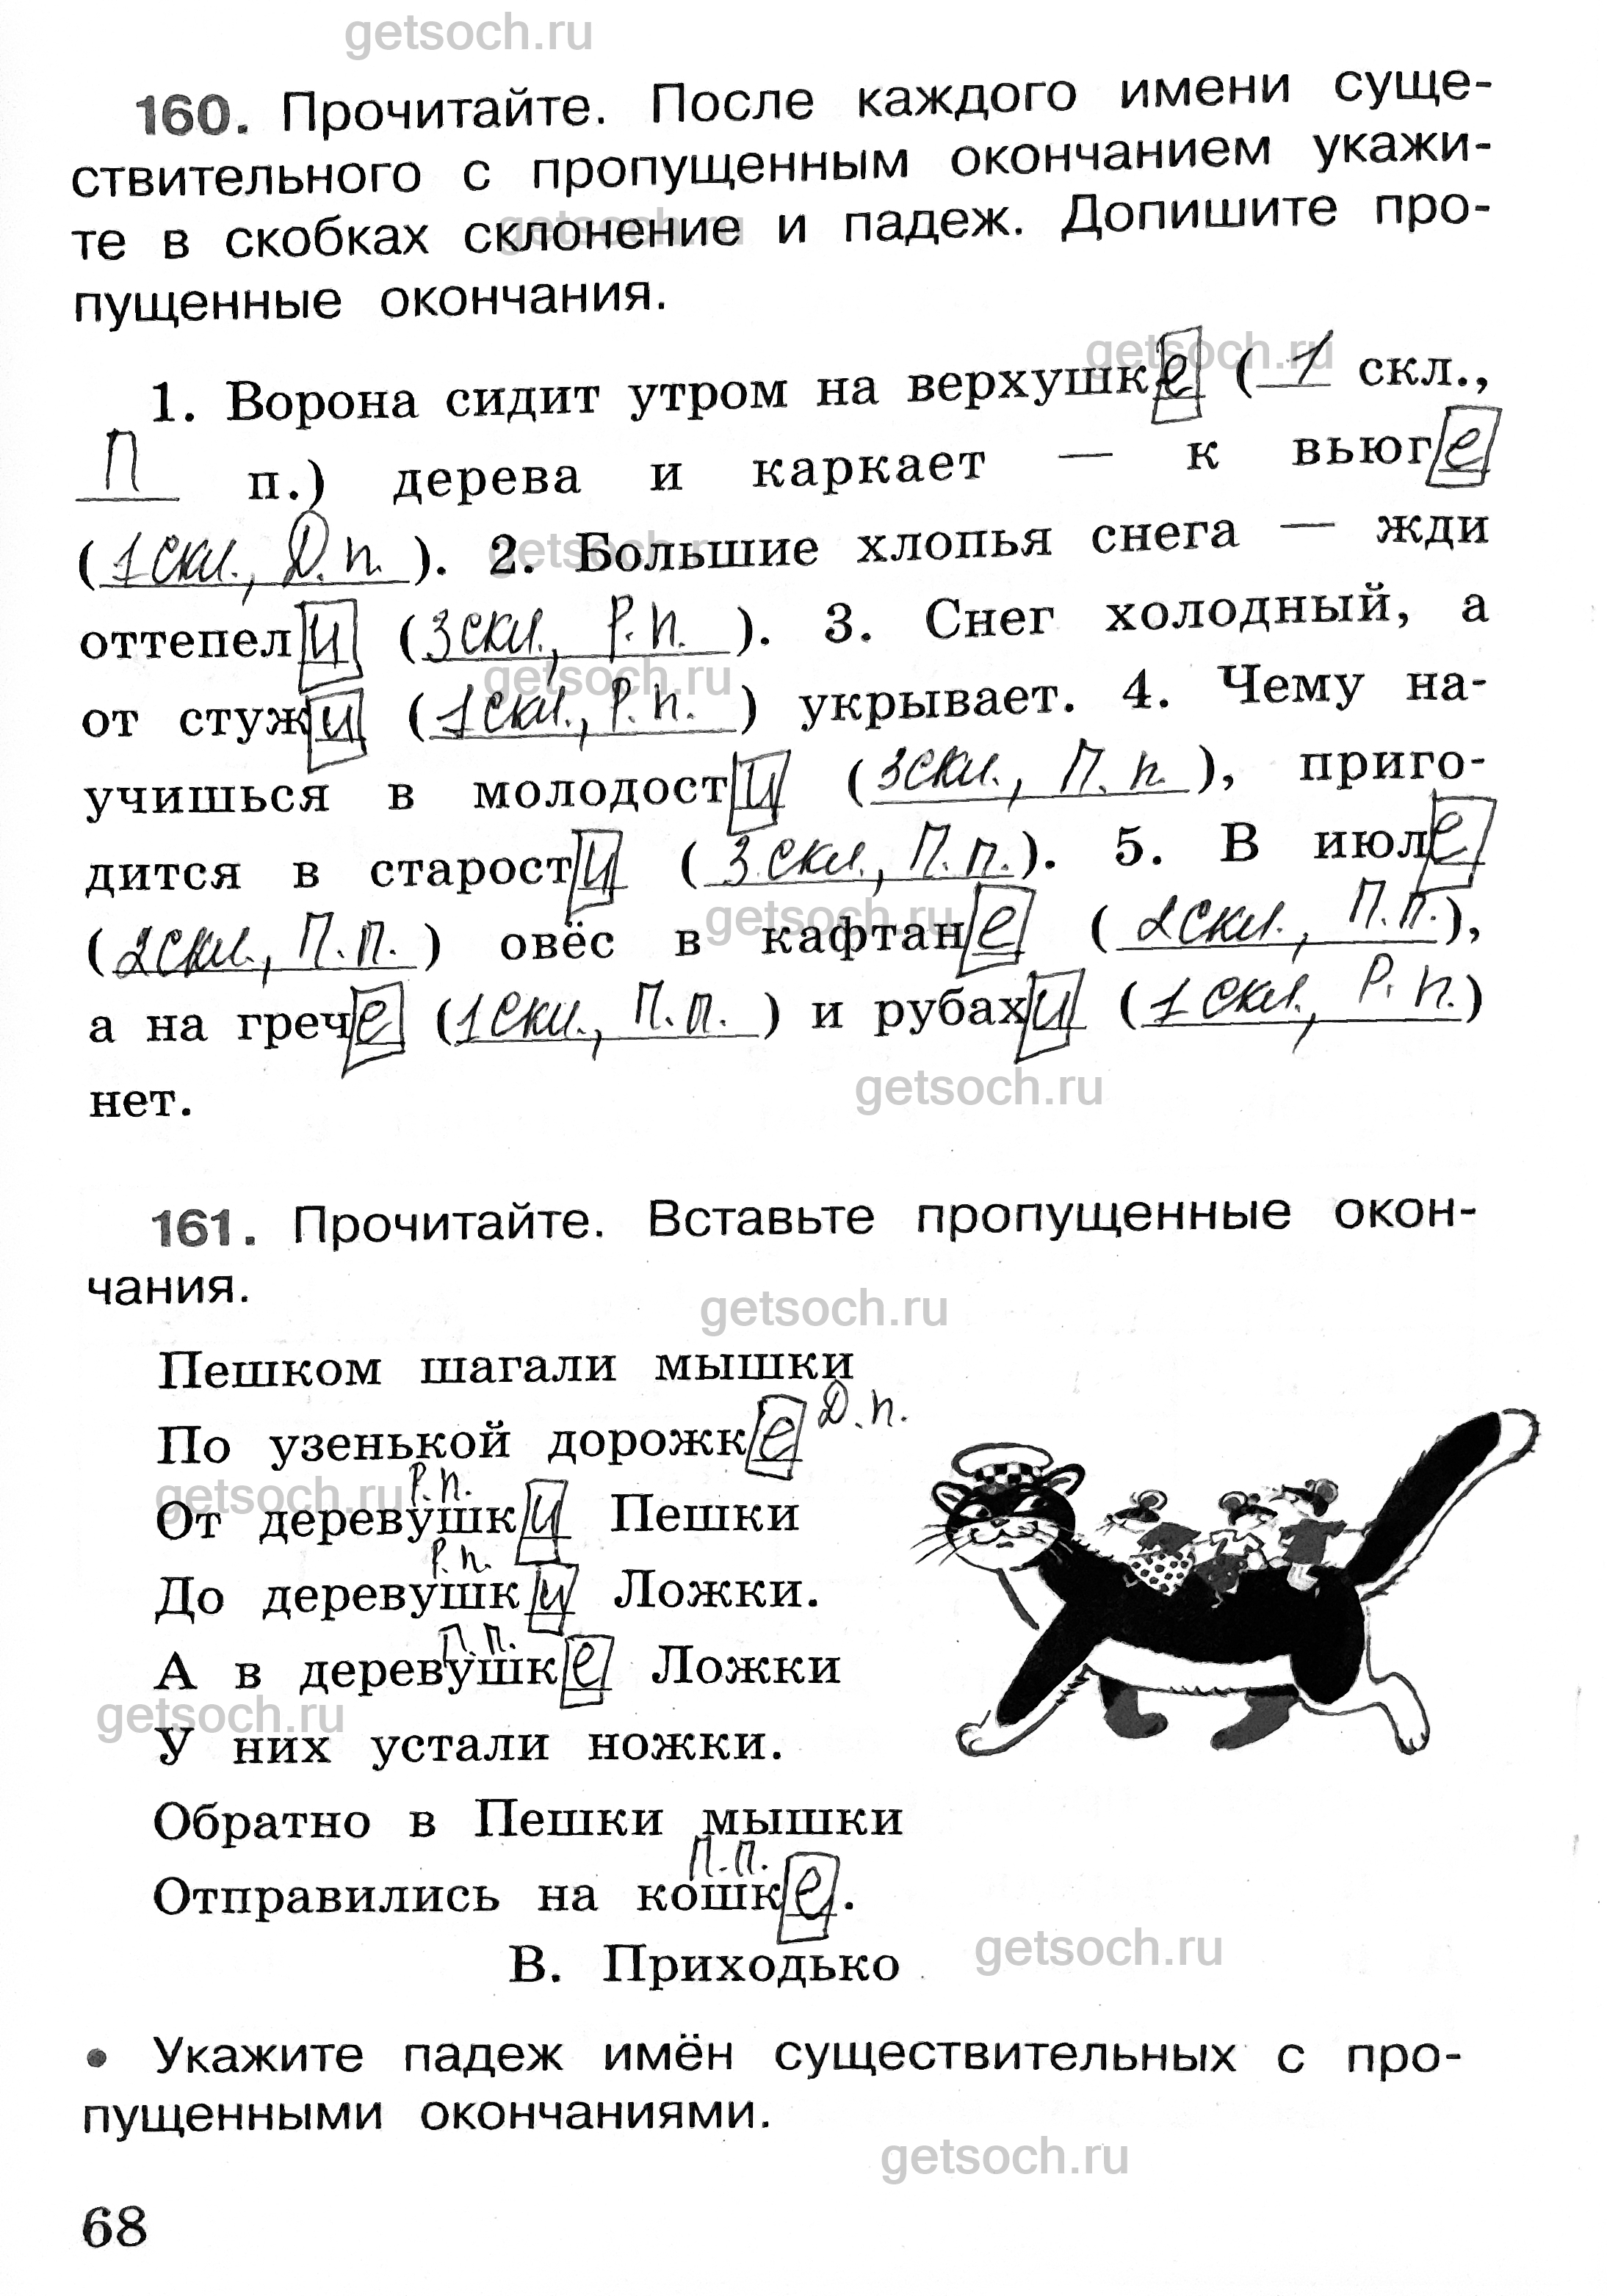 getsoch.ru
160. Прочитайте. После каждого имени суще-
ствительного с пропущенным окончанием укажи-
те в скобках склонение и падеж. Допишите про-
getsoch.ru
пущенные окончания.
getsoch.ru
1. Ворона сидит утром на верхушке (1 скл.,
П п.) дерева и каркает — к вьюге
(1 скл., Д. п.). 2. Большие хлопья снега — жди
getsoch.ru
оттепели (3 скл., Р. п.). 3. Снег холодный, а
getsoch.ru
от стужи (1 скл., Р. п.) укрывает. 4. Чему на-
учишься в молодости (3 скл., П. п.), приго-
дится в старости (3 скл., П. п.). 5. В июле
getsoch.ru
(2 скл., П. п.) овёс в кафтане (2 скл., П. п.),
а на грече (1 скл., П. п.) и рубахи (1 скл., Р. п.)
getsoch.ru
нет.
161. Прочитайте. Вставьте пропущенные окон-
чания.
getsoch.ru
Пешком шагали мышки
По узенькой дорожке Д. п.
getsoch.ru
Р. п.
От деревушки Пешки
Р. п.
До деревушки Ложки.
П. п.
А в деревушке Ложки
getsoch.ru
У них устали ножки.
Обратно в Пешки мышки
П. п.
Отправились на кошке.
getsoch.ru
В. Приходько
• Укажите падеж имён существительных с про-
пущенными окончаниями.
getsoch.ru
68